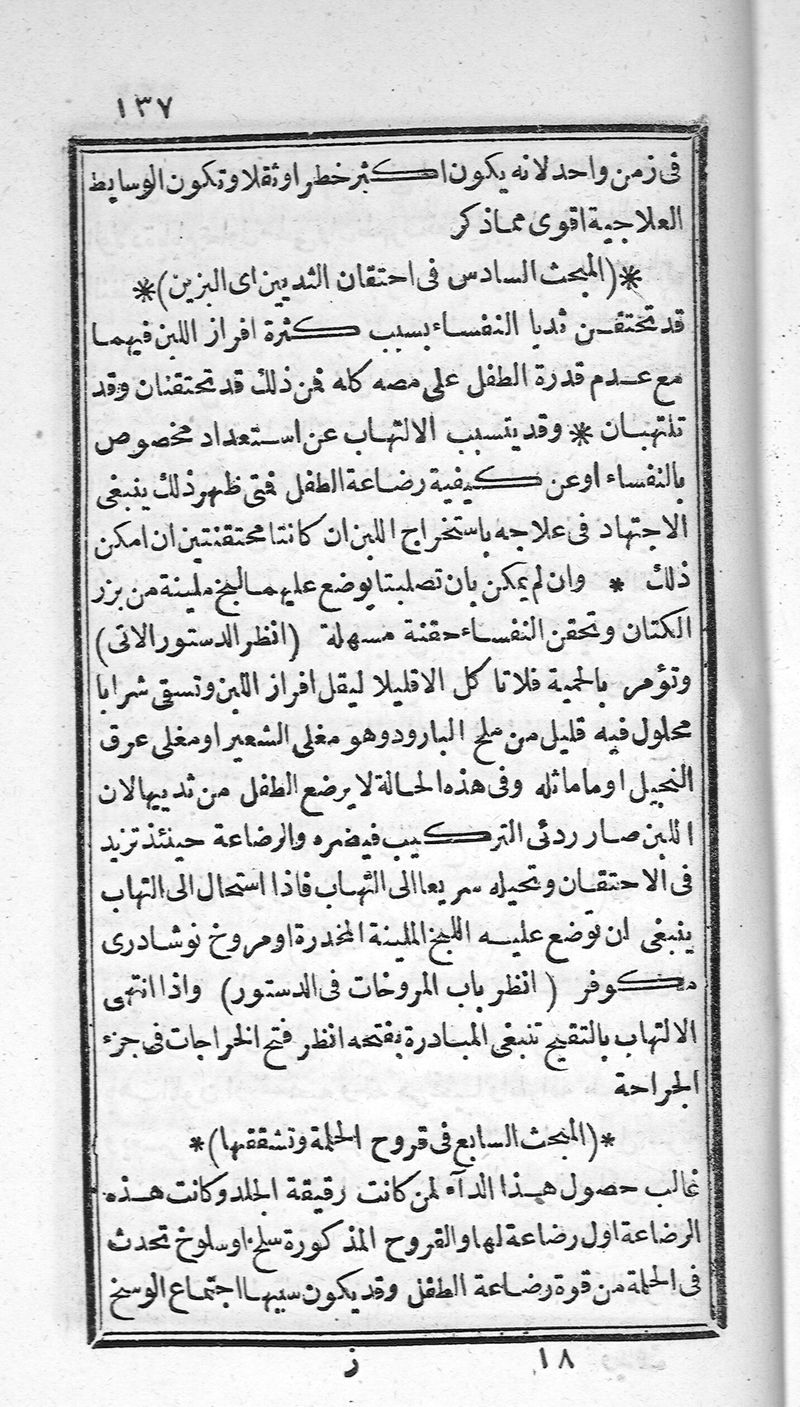 ١٣٧
فى زمن واحد لانه يكون اكثر خطرا وثقلا وتكون الوسايط
العلاجية اقوى مما ذكر
*(المبحث السادس فى احتقان الثديين اى البزين)*
قد تحتقن ثديا النفساء بسبب كثرة افراز اللبن فيهما
مع عدم قدرة الطفل على مصه كله فمن ذلك قد تحتقنان وقد
تلتهبان * وقد يتسبب الالتهاب عن استعداد مخصوص
بالنفساء او عن كيفية رضاعة الطفل فمتى ظهر ذلك ينبغى
الاجتهاد فى علاجه باستخراج اللبن ان كانتا محتقنتين ان امكن
ذلك * وان لم يمكن بان تصلبتا يوضع عليهما لبخ ملينة من بزر
الكتان وتحقن النفساء حقنة مسهلة (انظر الدستور الاتى)
وتؤمر بالحمية فلا تاكل الا قليلا ليقل افراز اللبن وتسقى شرابا
محلول فيه قليل من ملح البارود وهو مغلى الشعير او مغلى عرق
النجيل او ما ماثله وفى هذه الحالة لا يرضع الطفل من ثدييها لان
اللبن صار ردئى التركيب فيضره والرضاعة حينئذ تزيد
فى الاحتقان وتحيله سريعا الى التهاب فاذا استحال الى التهاب
ينبغى ان توضع عليه اللبخ الملينة المخدرة او مروخ نوشادرى
مكوفر (انظر باب المروخات فى الدستور) واذا انتهى
الالتهاب بالتقيح تنبغى المبادرة بفتحه انظر فتح الخراجات فى جزء
الجراحة
*(المبحث السابع فى قروح الحلمة وتشققها)*
غالب حصول هذا الدآء لمن كانت رقيقة الجلد وكانت هذه
الرضاعة اول رضاعة لها والقروح المذكورة سلخ او سلوخ تحدث
فى الحلمة من قوة رضاعة الطفل وقد يكون سببها اجتماع الوسخ
١٨ ز